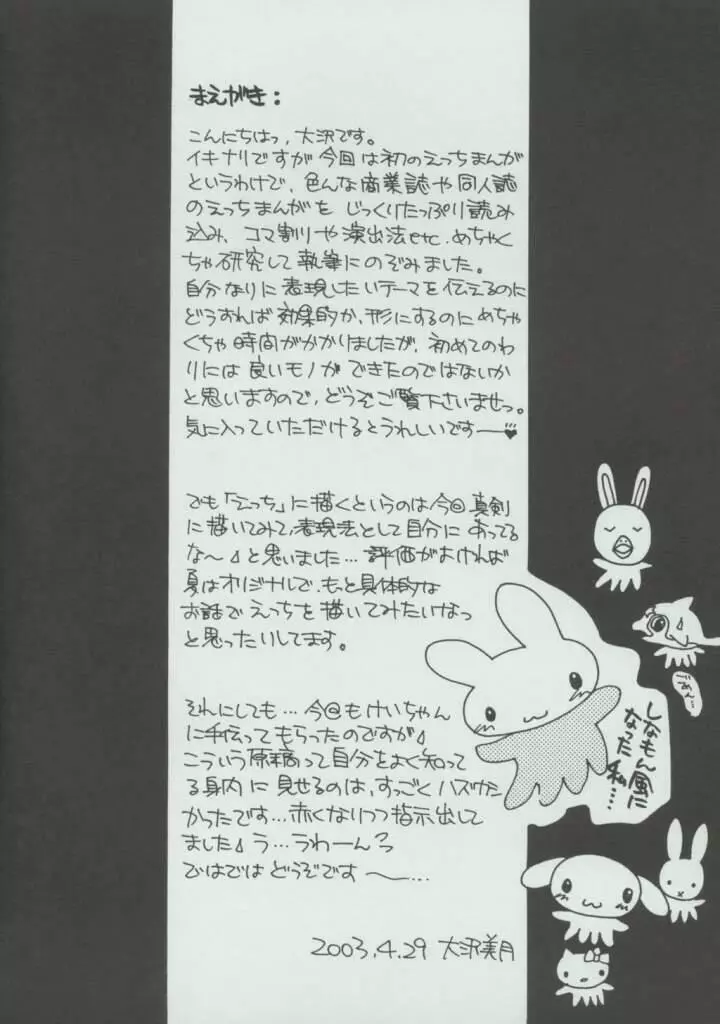 まえがき：
こんにちはっ，大沢です。
イキナリですが今回は初のえっちまんが
というわけで、色んな商業誌や同人誌
のえっちまんがを じっくりたっぷり読み
込み、コマ割りや演出法etc.めちゃく
ちゃ研究して執筆にのぞみました。
自分なりに表現したいテーマを伝えるのに
どうすれば効果的か、形にするのにめちゃ
くちゃ時間がかかりましたが、初めてのわ
りには良いモノができたのではないか
と思いますので、どうぞご覧下さいませっ。
気に入っていただけるとうれしいです──♥
でも「えっち」に描くというのは今回真剣
に描いてみて、表現法として自分に あってる
な〜♪と思いました…評価がよければ
夏はオリジナルで、もっと具体的な
お話でえっちを描いてみたいなっ
と思ったりしてます。
それにしても…今回もけいちゃん
に手伝ってもらったのですが♪
こういう原稿って自分をよく知って
る身内に見せるのは、すっごくハズカシ
かったです…赤くなりつつ指示出して
ました♪う…うわーんっ
ではではどうぞです〜…
2003.4.29 大沢美月
ごめん…
しなもん風に
なった私…